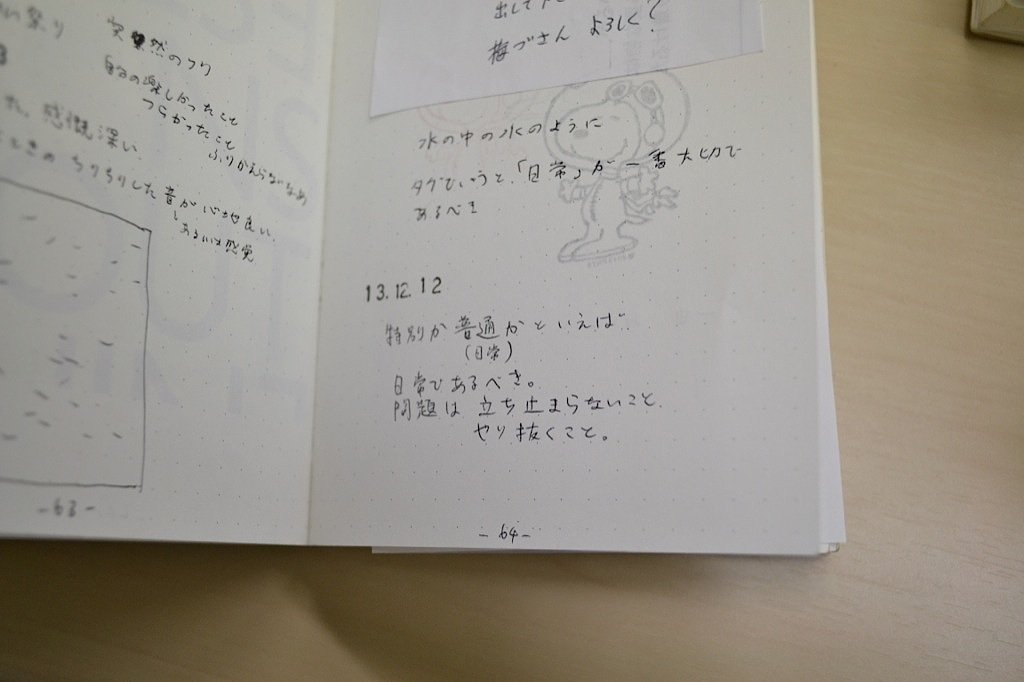 突然のフリ
自分の楽しかったこと
つらかったこと
ふりかえらないなぁ
感慨深い。
ときのちりちりした音が心地良い。
あるいは感覚
-63-
梅づさん よろしく?
水の中の水のように
タグでいうと、「日常」が一番大切で
あるべき
13.12.12
特別か普通かといえば
(日常)
日常であるべき。
問題は立ち止まらないこと。
やり抜くこと。
-64-